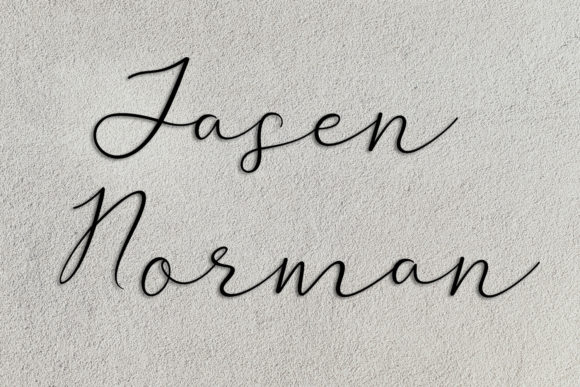 Jasen
Norman